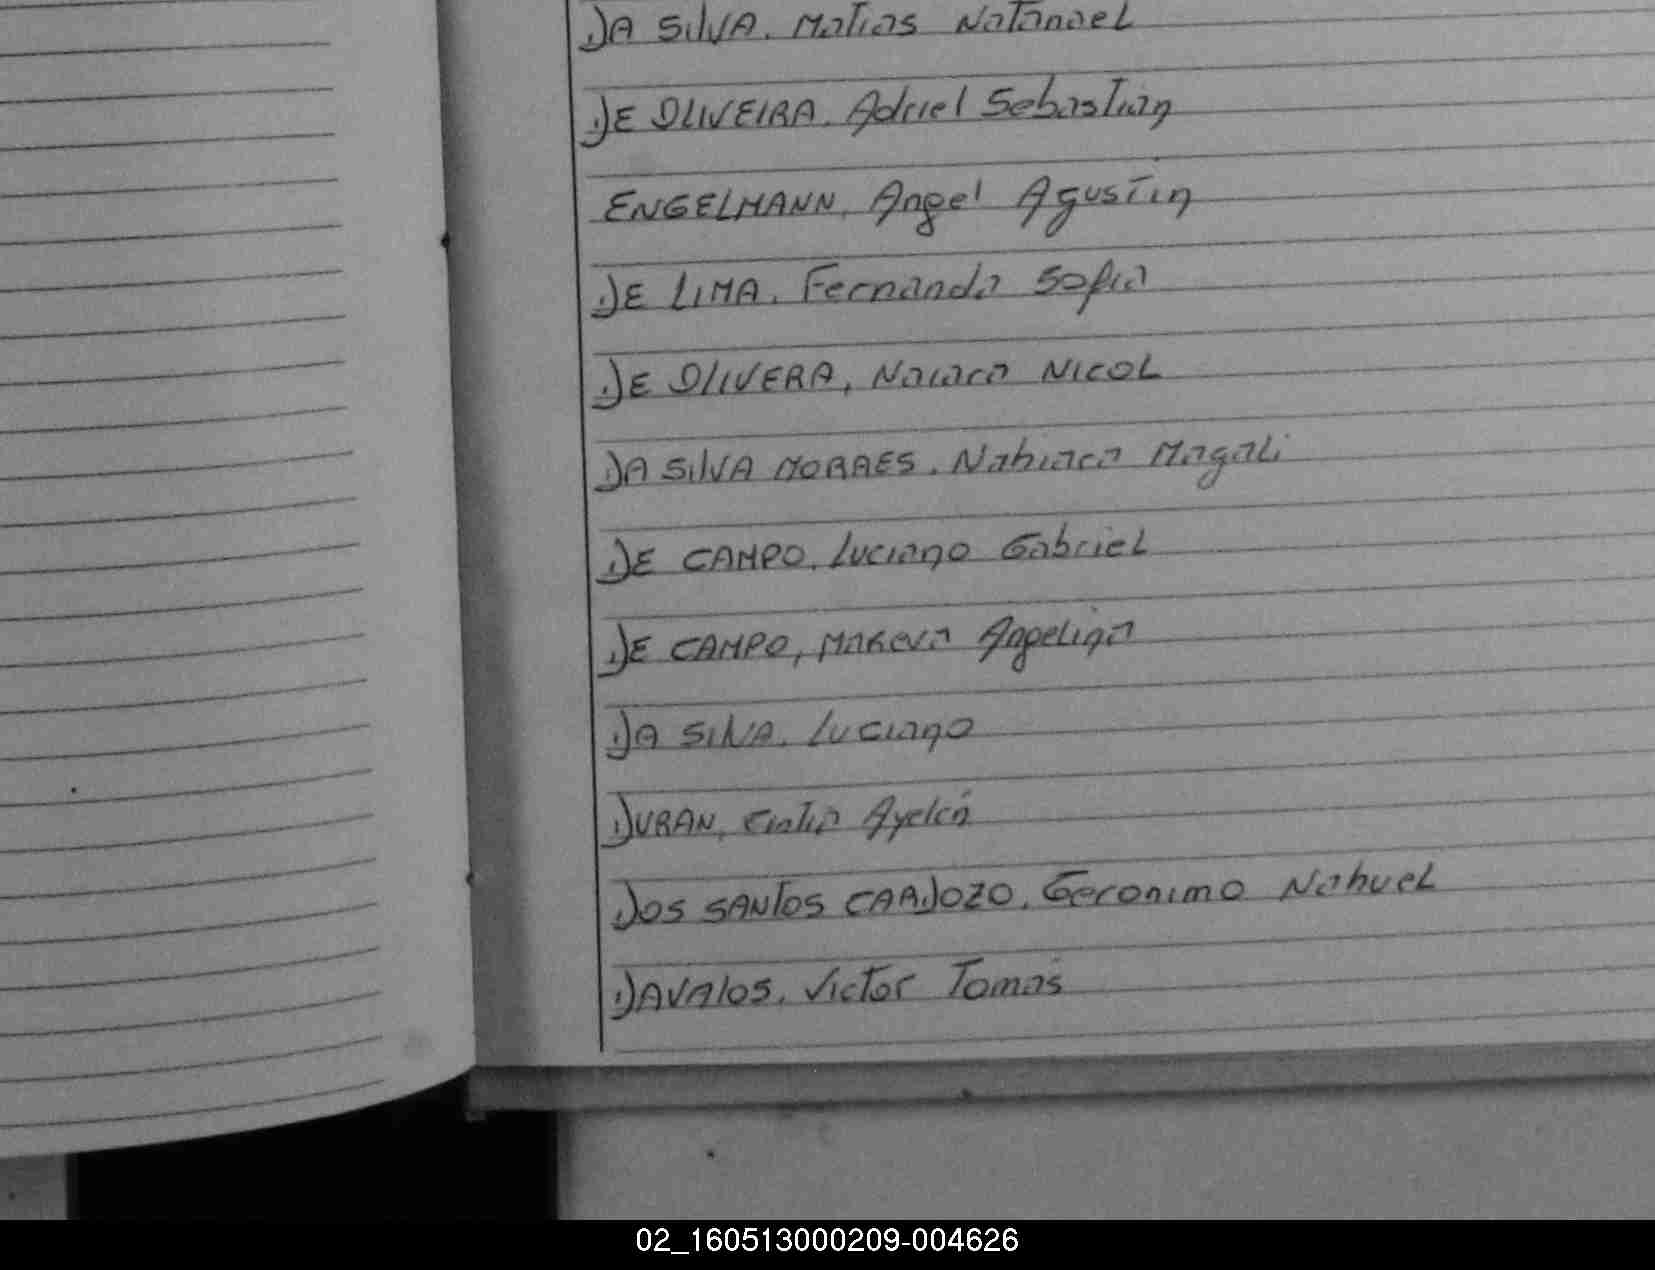 DA SILVA, Matias Natanael
DE OLIVEIRA, Adriel Sebastian
ENGELMANN, Angel Agustin
DE LIMA, Fernanda Sofia
DE OLIVERA, Naiara NICOL
DA SILVA MORAES, Nahiara Magali
DE CAMPO, Luciano Gabriel
DE CAMPO, Mareva Angelina
DA SILVA, Luciano
DURAN, Cintia Ayelén
DOS SANTOS CARDOZO, Geronimo Nahuel
DAVALOS, Victor Tomás
02_160513000209-004626